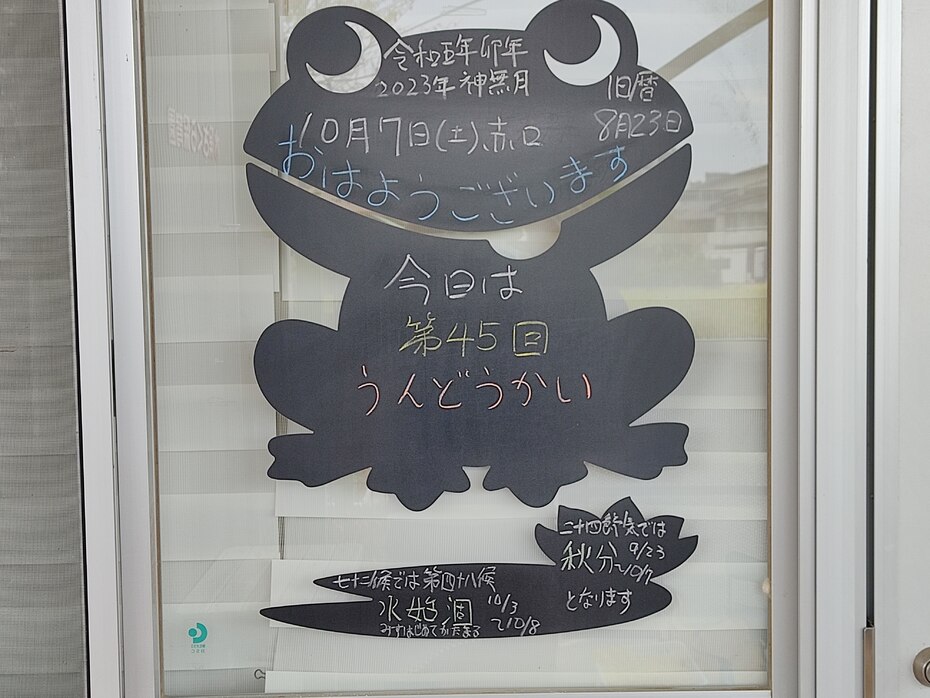 令和五年卯年
2023年神無月
旧暦
8月23日
10月7日(土)、赤口
おはようございます
今日は
第45回
うんどうかい
二十四節気では
秋分 9/23
~10/7
となります
七十二候では第四十八候
水始涸 10/3
~10/8
みずはじめてかたまる